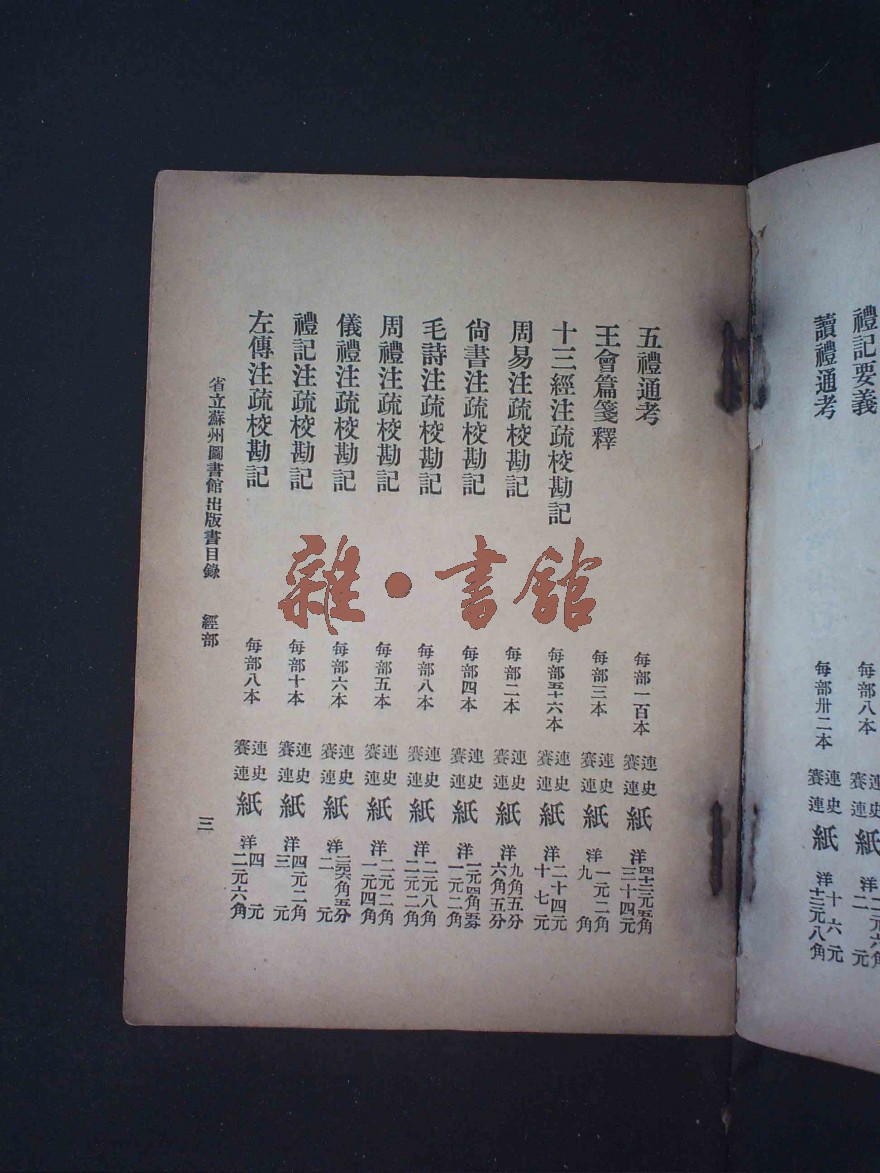 禮記要義 每部八本 連史賽連紙
讀禮通考 每部卅二本 連史賽連紙 洋十六元 十三元八角
五禮通考 每部一百本 連史賽連紙 洋四十三元五角 三十四元
王會篇箋釋 每部三本 連史賽連紙 洋一元二角 九角
十三經注疏校勘記 每部五十六本 連史賽連紙 洋二十四元 十七元
周易注疏校勘記 每部二本 連史賽連紙 洋九角五分 六角五分
尙書注疏校勘記 每部四本 連史賽連紙 洋一元四角五分 一元二角
毛詩注疏校勘記 每部八本 連史賽連紙 洋二元八角 二元二角
周禮注疏校勘記 每部五本 連史賽連紙 洋二元二角 一元四角
儀禮注疏校勘記 每部六本 連史賽連紙 洋 二元
禮記注疏校勘記 每部十本 連史賽連紙 洋四元二角 三元
左傳注疏校勘記 每部八本 連史賽連紙 洋四元 二元六角
省立蘇州圖書館出版書目錄 經部 三
雜·書館